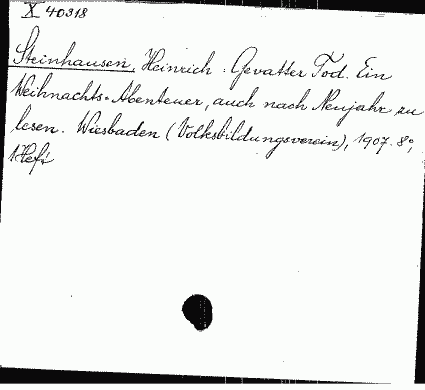 X 40318
Steinhausen, Heinrich. Gevatter Tod. Ein
Weihnachts-Abenteuer, auch nach Neujahr zu
lesen. Wiesbaden (Volksbildungsverein), 1907. 8°,
1 Heft